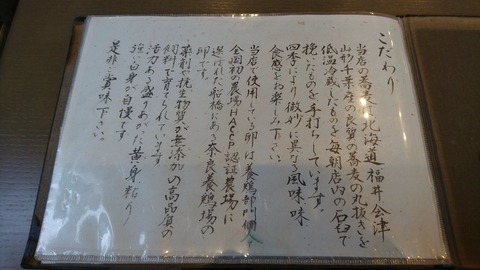 こだわり
当店の蕎麦は北海道福井会津
山形千葉産の良質の蕎麦の丸抜きを
低温冷蔵したものを毎朝店内の石臼で
挽いたものを手打らしています。
四季により微妙に異なる風味味
食感をお楽しみ下さい。
当店で使用している卵は養鶏部門個人
全国初の農場HACCP認証農場に
選ばれた船橋にある奈良養鶏場の
卵です。
薬剤や抗生物質が無添加の高品質の
飼料で育てられています。
活力ある盛りあがった黄身粘り
強い白身が自慢です
是非ご賞味下さい。